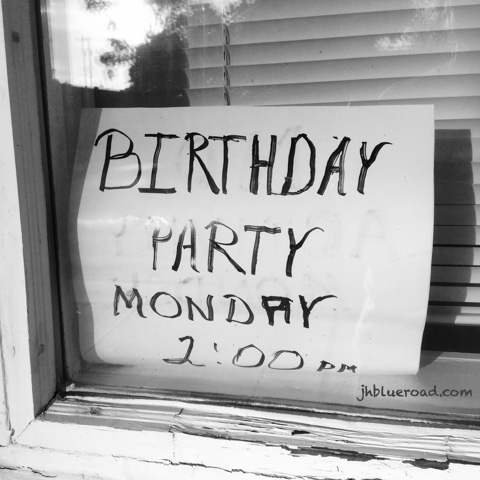 BIRTHDAY
PARTY
MONDAY
2:00 PM
jhblueroad.com